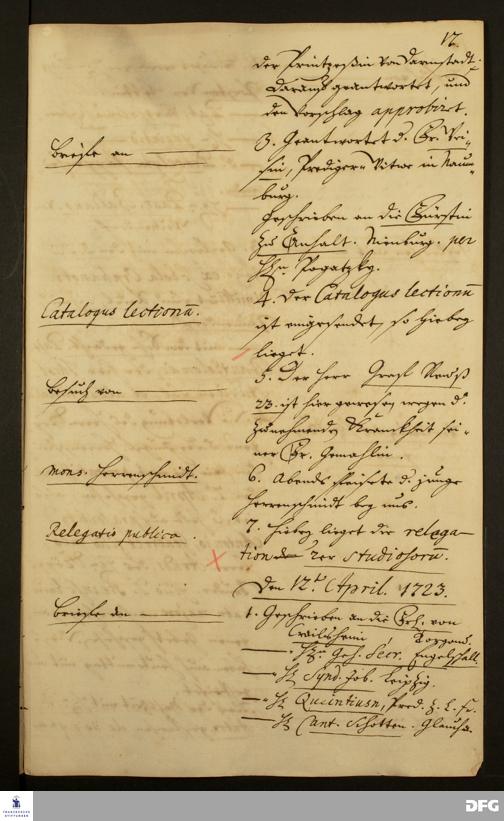 17.
der Printzeßin von Darmstadt
darauf geantwortet, und
den Vorschlag approbiret.
Briefe an
3. Geantwortet d. Fr.
sin, Prediger Witwe in Naum-
burg.
Geschrieben an die Fürstin
zu Anhalt. Nienburg. per
Hn. Pogatzky.
Catalogus lectionū.
4. Der Catalogus lectionū
ist eingesendet, so hiebey
lieget.
Besuch von
5. Der Herr Graf Reuß
23. ist hier gewesen wegen d.
zunehmenden Kranckheit sei-
ner Fr. Gemahlin.
Mons. Herrnschmidt.
6. Abends speisete d. junge
Herrnschmidt bey uns.
Relegatio publica.
7. Hiebey lieget die relega-
tion 2er Studiosorū.
Den 12t April. 1723.
Briefe an
1. Geschrieben an die von
Crailsheim
Hn Geh. Secr. Engelschall.
H. Synd. Job. Leipzig.
H. Quentius, Pred.
H. Cant. Schotten. Glaucha.
FRANCKESCHE STIFTUNGEN
DFG